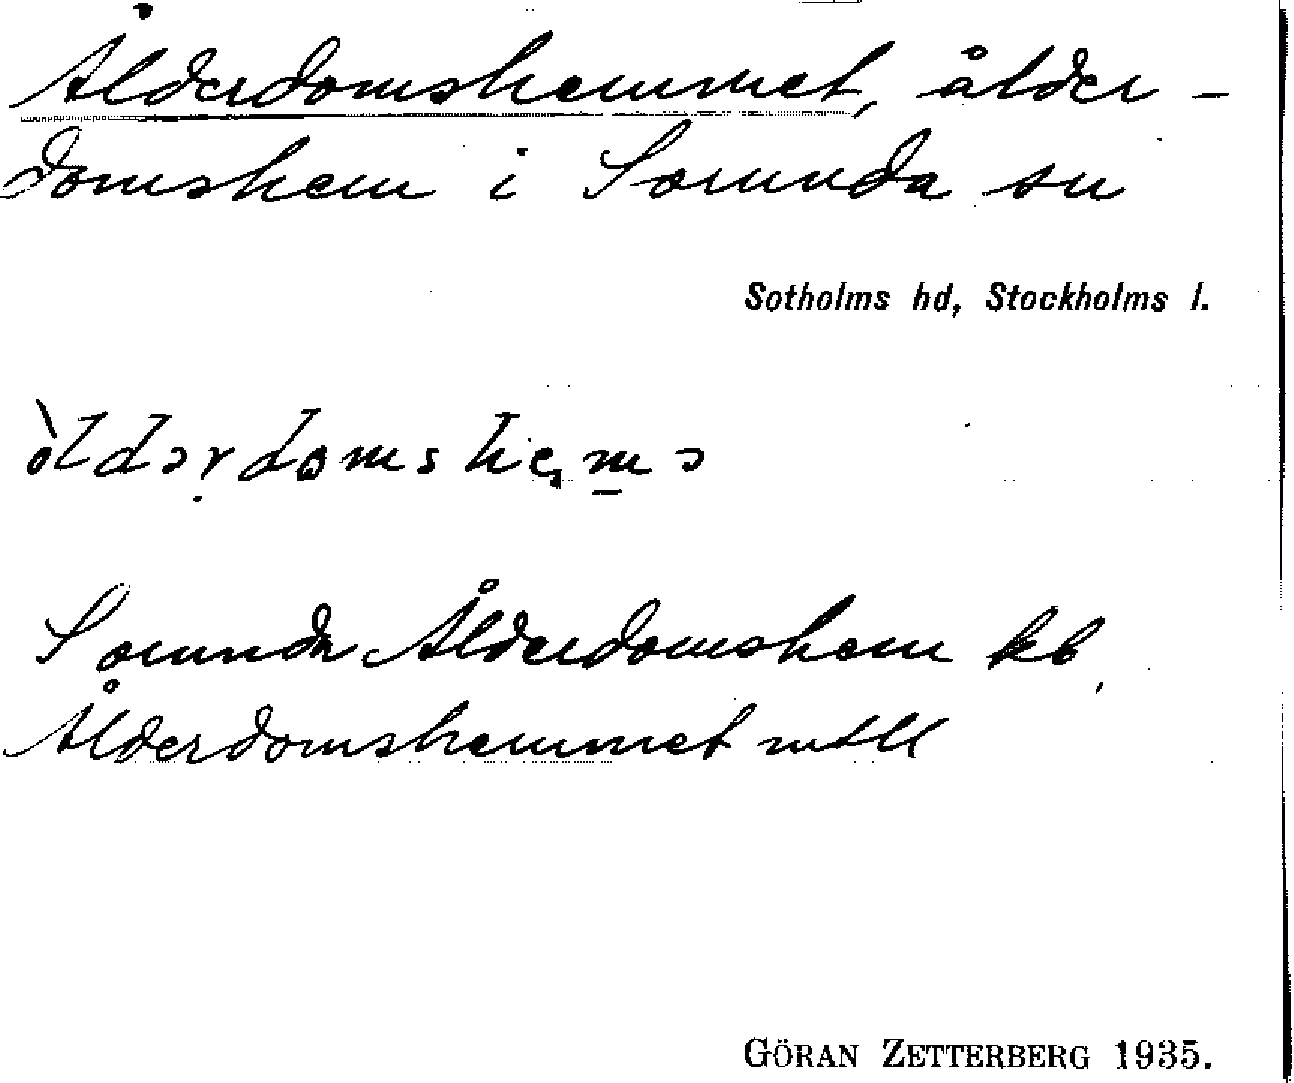 Ålderdomshemmet, ålder-
domshem i Sorunda sn
Sotholms hd, Stockholms l.
Sorunda Ålderdomshem kb,
Ålderdomshemmet mtll
GÖRAN ZETTERBERG 1935.